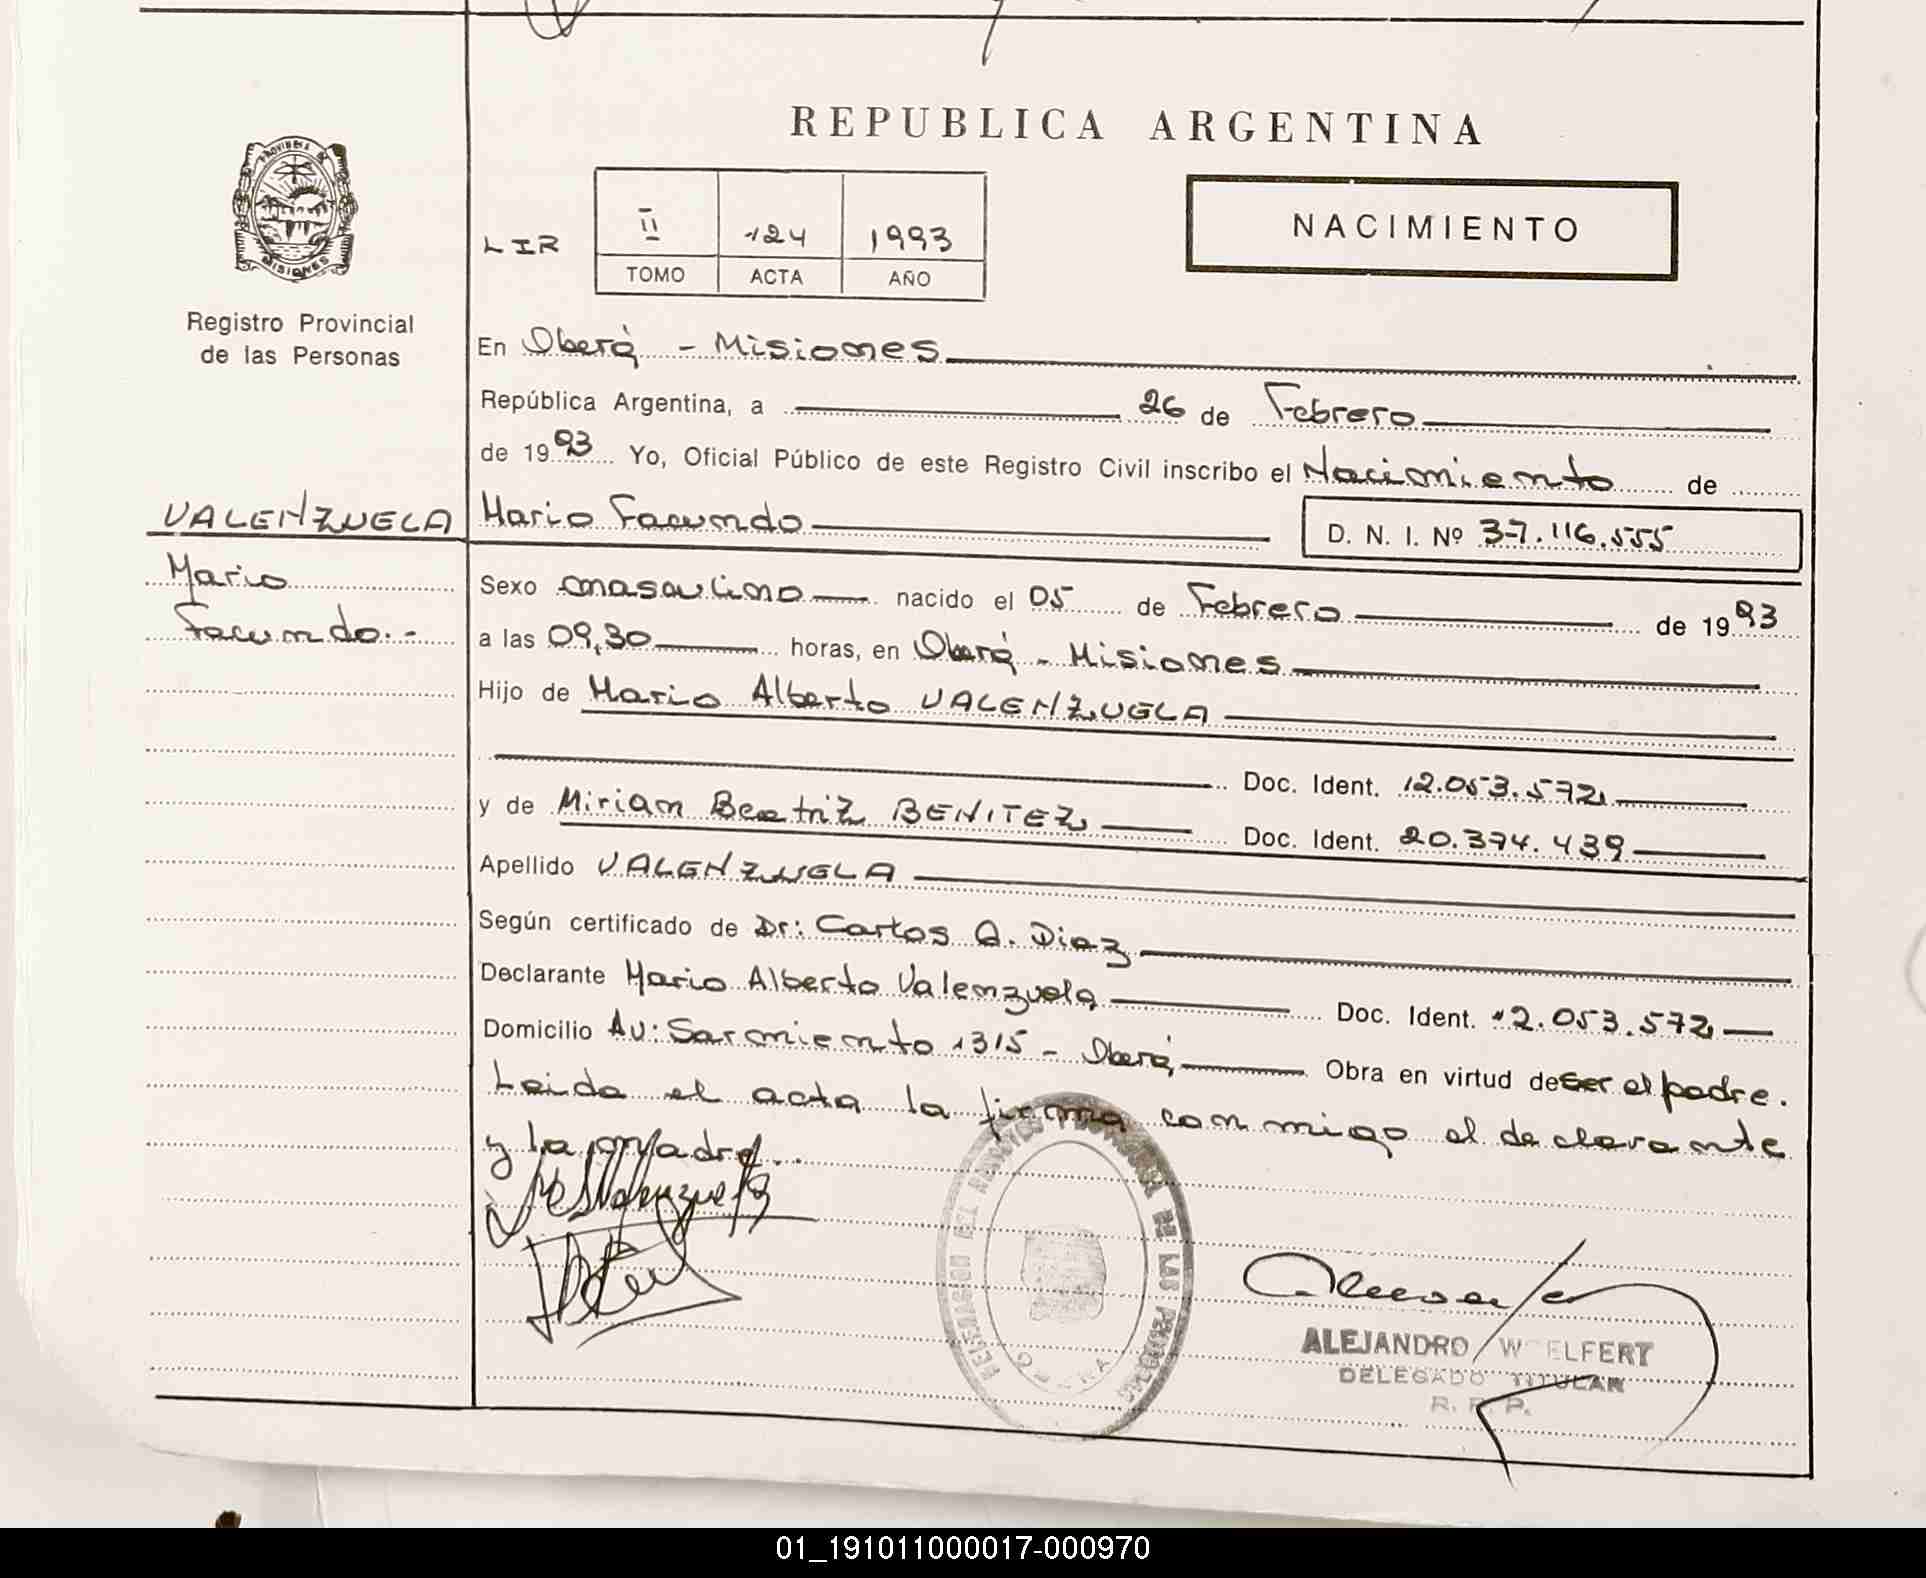 REPUBLICA ARGENTINA
PROVINCIA DE
MISIONES
Registro Provincial
de las Personas
LIR
II 124 1993
TOMO ACTA AÑO
NACIMIENTO
En Oberá - Misiones
República Argentina, a 26 de Febrero
de 1993 Yo, Oficial Público de este Registro Civil inscribo el Nacimiento de
VALENZUELA Mario Facundo D. N. I. Nº 37.116.555
Mario
Facundo.-
Sexo masculino nacido el 05 de Febrero de 1993
a las 09,30 horas, en Oberá - Misiones
Hijo de Mario Alberto VALENZUELA
Doc. Ident. 12.053.572
y de Miriam Beatriz BENITEZ Doc. Ident. 20.374.439
Apellido VALENZUELA
Según certificado de Dr: Carlos A. Diaz
Declarante Mario Alberto Valenzuela Doc. Ident. 12.053.572
Domicilio Av: Sarmiento 1315 - Oberá Obra en virtud de ser el padre.
Leida el acta la firma conmigo el declarante
y la madre..
DE LAS PERSONAS
OBERA
ALEJANDRO WOELFERT
DELEGADO TITULAR
R. P. P.
01_191011000017-000970